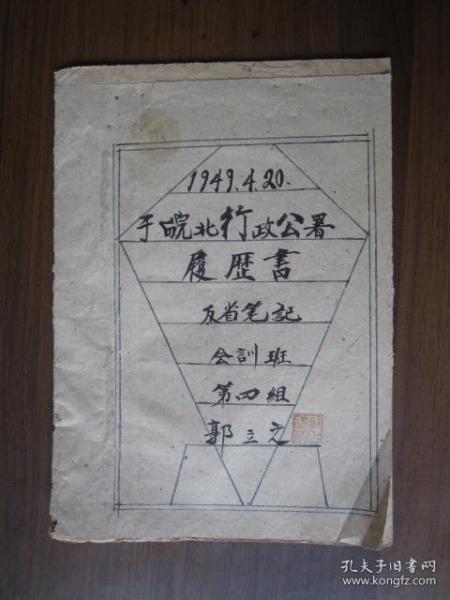 1949.4.20.
于皖北行政公署
履歷書
反省笔記
会訓班
第四組
郭立之
孔夫子旧书网
www.kongfz.com